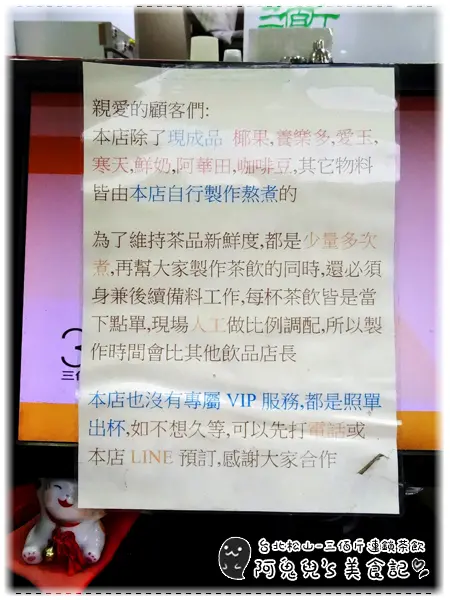 三佰斤
親愛的顧客們:
本店除了現成品 椰果,養樂多,愛玉,
寒天,鮮奶,阿華田,咖啡豆,其它物料
皆由本店自行製作熬煮的
為了維持茶品新鮮度,都是少量多次
煮,再幫大家製作茶飲的同時,還必須
身兼後續備料工作,每杯茶飲皆是當
下點單,現場人工做比例調配,所以製
作時間會比其他飲品店長
本店也沒有專屬 VIP 服務,都是照單
出杯,如不想久等,可以先打電話或
本店 LINE 預訂,感謝大家合作
台北松山-三佰斤連鎖茶飲
阿兒兒's 美食記